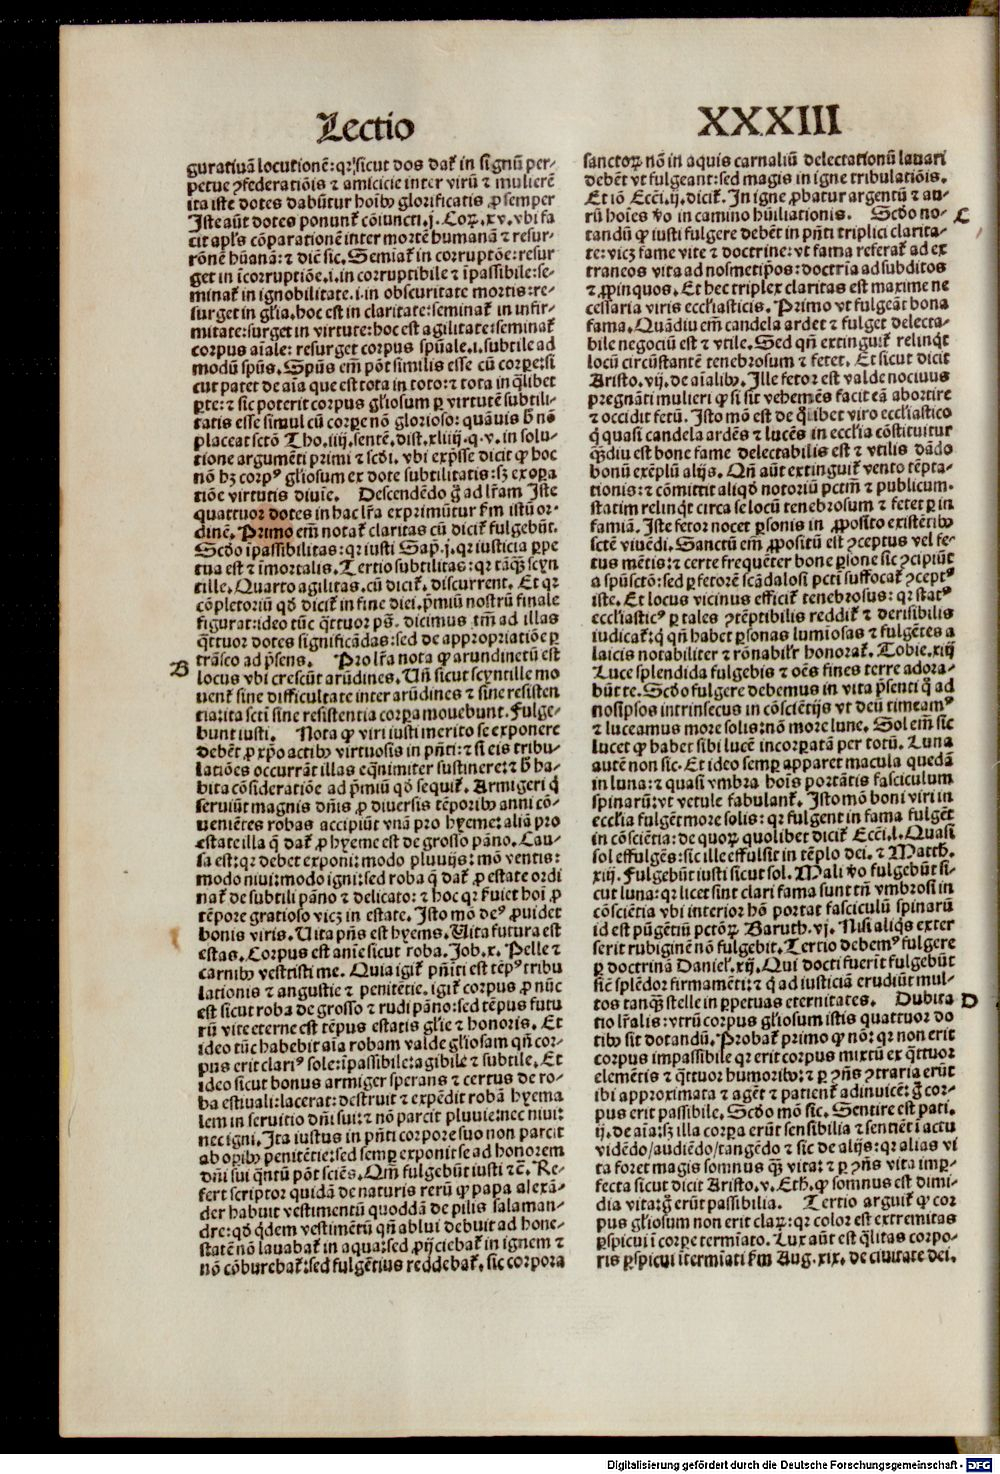 Lectio
XXXIII
guratiuã locutionẽ: qꝛ sicut dos daꞇ̃ in signũ per⸗
petue ꝯfederatiõis ⁊ amicicie inter virũ ⁊ mulierẽ
ita iste dotes dabũtur hoĩbꝰ glorificatis ꝓ semper
Iste aũt dotes ponunꞇ̃ cõiuncti. j. Coꝝ. xv. vbi fa
cit apl's cõparationẽ inter mortẽ humanã ⁊ resur⸗
rõnẽ hũanã: ⁊ diẽ sic. Semiaꞇ̃ in corruptõe: resur
get in ĩcorruptiõe .i. in corruptibile ⁊ ĩpassibile: se⸗
minaꞇ̃ in ignobilitate .i. in obscuritate mortis: re⸗
surget in gl'ia. hoc est in claritate: seminaꞇ̃ in infir⸗
mitate: surget in virtute: hoc est agilitate: seminaꞇ̃
corpus aĩale: resurget corpus spũale .i. subtile ad
modũ spũs. Spũs em̃ põt similis esse cũ corpe: si
cut patet de aĩa que est tota in toto: ⁊ tota in q̃libet
ꝑte: ⁊ sic poterit corpus gl'iosum ꝑ virtutẽ subtili⸗
tatis esse simul cũ corpe nõ glorioso: quãuis h̃ nõ
placeat sctõ Tho. iiij. sentẽ. dist. xliiij. q. v. in solu⸗
tione argumẽti primi ⁊ scd̃i. vbi exp̃sse dicit ꝙ hoc
nõ hꝫ corpꝰ gl'iosum ex dote subtilitatis: sꝫ ex oꝑa
tiõe virtutis diuĩe. Descendẽdo g̃ ad l'ram Iste
quattuor dotes in hac l'ra exprimũtur ẜm istũ or⸗
dinẽ. Primo em̃ notaꞇ̃ claritas cũ diciꞇ̃ fulgebũt.
Scd̃o ĩpassibilitas: qꝛ iusti Sap̃. j. qꝛ iusticia ꝑpe
tua est ⁊ ĩmortalis. Tertio subtilitas: qꝛ tãqꝫ scyn
tille. Quarto agilitas. cũ diciꞇ̃. discurrent. Et qꝛ
cõpletoriũ qd̃ diciꞇ̃ in fine diei. p̃miũ nostrũ finale
figurat: ideo tũc q̃ttuor ps̃. dicimus tm̃ ad illas
q̃ttuor dotes significãdas: sed de appropriatiõe ꝑ
B
trãseo ad p̃sens. Pro l'ra nota ꝙ arundinetũ est
locus vbi crescũt arũdines. Uñ sicut scyntille mo
uenꞇ̃ sine difficultate inter arũdines ⁊ sine resisten
tia: ita scti sine resistentia corpa mouebunt. Fulge⸗
bunt iusti. Nota ꝙ viri iusti merito se exponere
debẽt ꝓ xp̃o actibꝰ virtuosis in pñti: ⁊ si eis tribu⸗
latiões occurrãt illas eq̃nimiter sustinere: ⁊ h̃ ha⸗
bita cõsideratiõe ad p̃miũ qd̃ sequiꞇ̃. Armigeri q̃
seruiũt magnis dñis ꝓ diuersis tẽporibꝰ anni cõ⸗
uenientes robas accipiũt vnã pro hyeme: aliã pro
estate illa q̃ daꞇ̃ ꝓ hyeme est de grosso pãno. Cau⸗
sa est: qꝛ debet exponi: modo pluuijs: mõ ventis:
modo niui: modo igni: sed roba q̃ daꞇ̃ ꝓ estate ordi
naꞇ̃ de subtili pãno ⁊ delicato: ⁊ hoc qꝛ ẜuiet hoĩ ꝓ
tẽpore gratioso vicꝫ in estate. Isto mõ deꝰ ꝓuidet
bonis viris. Uita pñs est hyems. Uita futura est
estas. Corpus est anĩe sicut roba. Job. x. Pelle ⁊
carnibꝰ vestisti me. Quia igiꞇ̃ pñti est tẽpꝰ tribu
lationis ⁊ angustie ⁊ penitẽtie. igiꞇ̃ corpus ꝓ nũc
est sicut roba de grosso ⁊ rudi pãno: sed tẽpus futu
rũ vite eterne est tẽpus estatis gl'ie ⁊ honoris. Et
ideo tũc habebit aĩa robam valde gl'iosam qñ cor⸗
pus erit clariꝰ sole: ĩpassibile: agibile ⁊ subtile. Et
ideo sicut bonus armiger sperans ⁊ certus de ro⸗
ba estiuali: lacerat: destruit ⁊ expẽdit robã hyema
lem in seruitio dñi sui: ⁊ nõ parcit pluuie: nec niui:
nec igni. Ita iustus in pñti corpore suo non parcit
ab oꝑibꝰ penitẽtie: sed semꝑ exponit se ad honorem
dñi sui q̃ntũ põt sciẽs. Qm̃ fulgebũt iusti ⁊c̃. Re⸗
fert scriptor quidã de naturis rerũ ꝙ papa alexã⸗
der habuit vestimentũ quoddã de pilis salaman⸗
dre: qd̃ q̃dem vestimẽtũ qñ ablui debuit ad hone⸗
statẽ nõ lauabaꞇ̃ in aqua: sed ꝓijciebaꞇ̃ in ignem ⁊
nõ cõburebaꞇ̃: sed fulgẽtius reddebaꞇ̃. sic corpora
sanctoꝝ nõ in aquis carnaliũ delectationũ lauari
debẽt vt fulgeant: sed magis in igne tribulatiõis.
Et iõ Ecc̃i. ij. diciꞇ̃. In igne ꝓbatur argentũ ⁊ au⸗
rũ hoĩes ṽo in camino hũiliationis. Scd̃o no⸗
C
tandũ ꝙ iusti fulgere debẽt in pñti triplici clarita⸗
te: vicꝫ fame vite ⁊ doctrine: vt fama referaꞇ̃ ad ex
traneos vita ad nosmetip̃os: doctrĩa ad subditos
⁊ ꝓpinquos. Et hec triplex claritas est maxime ne
cessaria viris eccl'iasticis. Primo vt fulgeãt bona
fama. Quãdiu em̃ candela ardet ⁊ fulget delecta⸗
bile negociũ est ⁊ vtile. Sed qñ extinguiꞇ̃ relinq̃t
locũ circũstantẽ tenebrosum ⁊ fetet. Et sicut dicit
Aristo. vij. de aĩalibꝰ. Ille fetor est valde nociuus
pregnãti mulieri ꝙ si sit vehemẽs facit eã abortire
⁊ occidit fetũ. Isto mõ est de q̃libet viro eccl'iastico
q̃ quasi candela ardẽs ⁊ lucẽs in eccl'ia cõstituitur
qꝫdiu est bone fame delectabilis est ⁊ vtilis dãdo
bonũ exẽplũ alijs. Qñ aũt extinguiꞇ̃ vento tẽpta⸗
tionis: ⁊ cõmittit aliqd̃ notoriũ pctm̃ ⁊ publicum.
statim relinqt circa se locũ tenebrosum ⁊ fetet ꝑ in
famiã. Iste fetor nocet ꝑsonis in ꝓposito existẽtibꝰ
sctẽ viuẽdi. Sanctũ em̃ ꝓpositũ est ꝯceptus vel fe⸗
tus mẽtis: ⁊ certe frequẽter bone ꝑsone sic ꝯcipiũt
a spũsctõ: sed ꝑ fetorẽ scãdalosi pcti suffocaꞇ̃ ꝯceptꝰ
iste. Et locus vicinus efficiꞇ̃ tenebrosus: qꝛ statꝰ
eccl'iasticꝰ ꝑ tales ꝯtẽptibilis reddiꞇ̃ ⁊ derisibilis
iudicaꞇ̃: q̃ qñ habet ꝑsonas lumĩosas ⁊ fulgẽtes a
laicis notabiliter ⁊ rõnabil'r honoraꞇ̃. Tobie. xiij
Luce splendida fulgebis ⁊ oẽs fines terre adora⸗
bũt te. Scd̃o fulgere debemus in vita p̃senti q̃ ad
nosipsos intrinsecus in cõsciẽtijs vt deũ timeamꝰ
⁊ luceamus more solis: nõ more lune. Sol em̃ sic
lucet ꝙ habet sibi lucẽ incorꝑatã per totũ. Luna
autẽ non sic. Et ideo semꝑ apparet macula quedã
in luna: ⁊ quasi vmbra hoĩs portãtis fasciculum
spinarũ: vt vetule fabulanꞇ̃. Isto mõ boni viri in
eccl'ia fulgẽt more solis: qꝛ fulgent in fama fulgẽt
in cõsciẽtia: de quoꝝ quolibet diciꞇ̃ Ecc̃i. l. Quasi
sol effulgẽs: sic ille effulsit in tẽplo dei. ⁊ Matth.
xiij. Fulgebũt iusti sicut sol. Mali ṽo fulgebũt si⸗
cut luna: qꝛ licet sint clari fama sunt tñ vmbrosi in
cõsciẽtia vbi interior hõ portat fasciculũ spinarũ
id est pũgẽtiũ pctõꝝ. Baruth. vj. Nisi aliq̃s exter
serit rubiginẽ nõ fulgebit. Tertio debemꝰ fulgere
ꝑ doctrinã Daniel'. xij. Qui docti fuerĩt fulgebũt
sic splẽdor firmamẽti: ⁊ q̃ ad iusticiã erudiũt mul⸗
tos tanqꝫ stelle in ꝑpetuas eternitates. Dubita
D
tio l'ralis: vtrũ corpus gl'iosum istis quattuor do
tibꝰ sit dotandũ. Probaꞇ̃ primo ꝙ nõ: qꝛ non erit
corpus impassibile qꝛ erit corpus mixtũ ex q̃ttuor
elemẽtis ⁊ q̃ttuor humoribꝰ: ⁊ ꝑ ꝯñs ꝯtraria erũt
ibi approximata ⁊ agẽt ⁊ patienꞇ̃ adinuicẽ: g̃ cor⸗
pus erit passibile. Scd̃o mõ sic. Sentire est pati.
ij. de aĩa: sꝫ illa corꝑa erũt sensibilia ⁊ sentiẽt ĩ actu
vidẽdo/ audiẽdo/ tangẽdo ⁊ sic de alijs: qꝛ alias vi
ta foret magis somnus qꝫ vita: ⁊ ꝑ ꝯñs vita imꝑ⸗
fecta sicut dicit Aristo. v. Eth. ꝙ somnus est dimi⸗
dia vita: g̃ erũt passibilia. Tertio arguiꞇ̃ ꝙ cor
pus gl'iosum non erit claꝝ: qꝛ color est extremitas
ꝑspicui ĩ corpe termĩato. Lux aũt est q̃litas corpo⸗
ris ꝑspicui ĩtermĩati ẜm Aug. xix. de ciuitate dei.
Digitalisierung gefördert durch die Deutsche Forschungsgemeinschaft - DFG